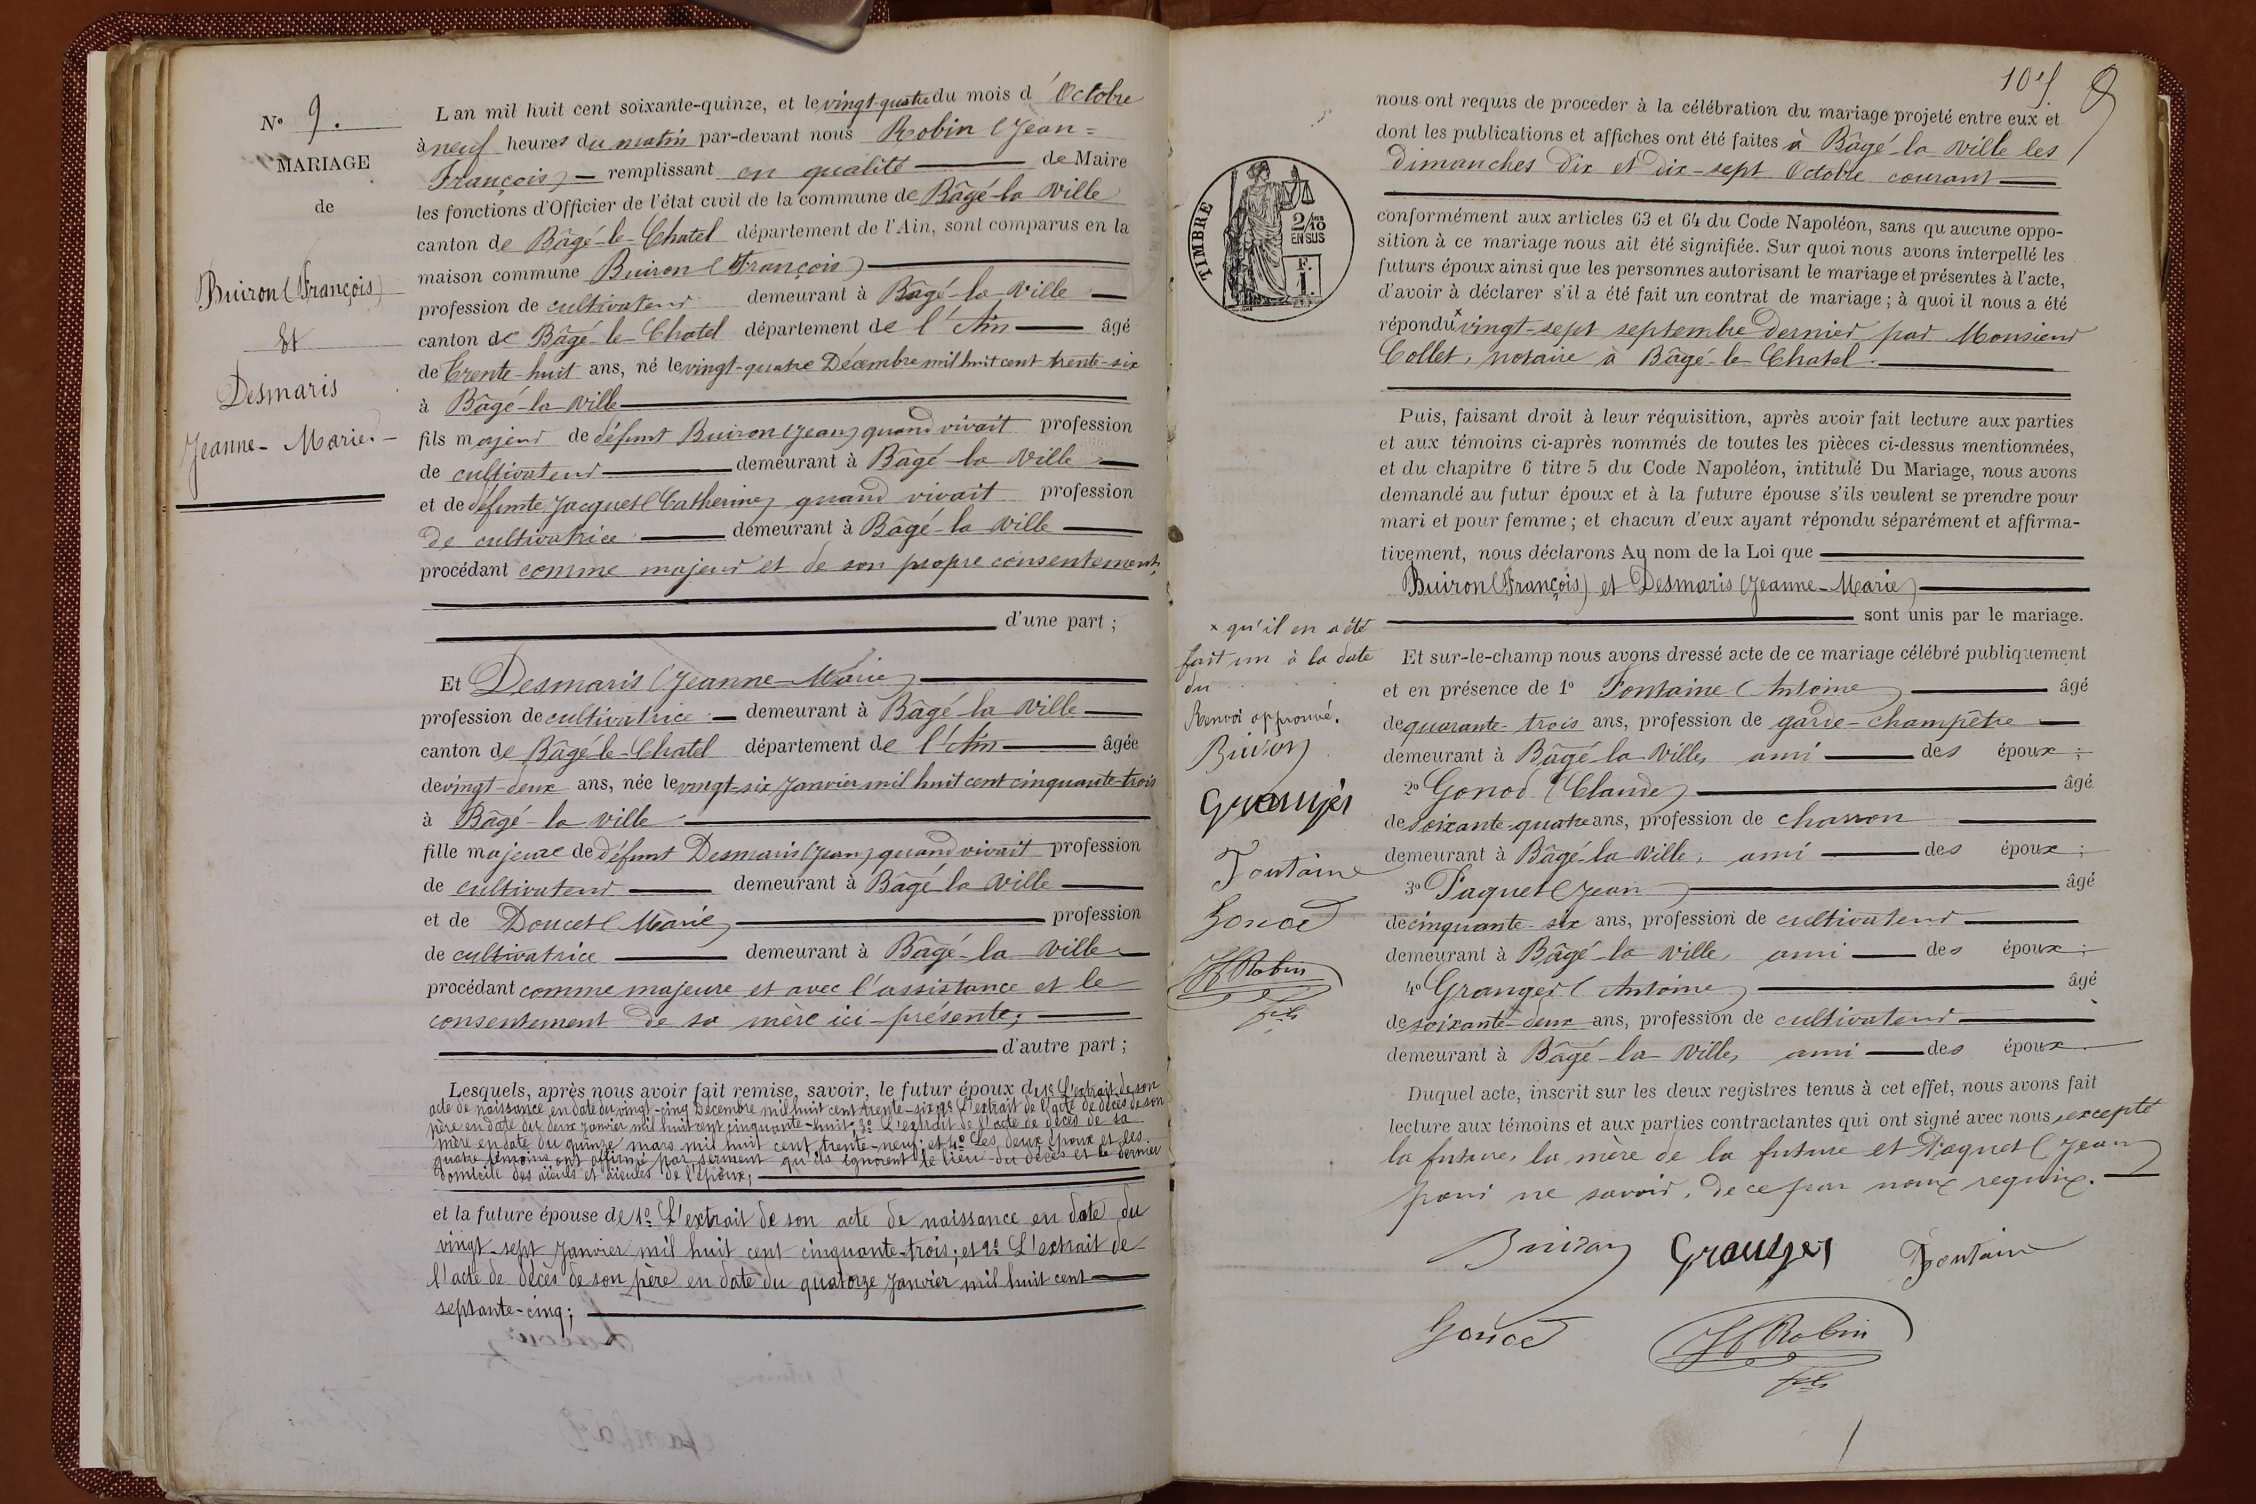 N° 9.
MARIAGE
de
Buiron (François)
Et
Desmaris
Jeanne-Marie.
L an mil huit cent soixante-quinze, et le vingt-quatre du mois d'Octobre
à neuf heures du matin par-devant nous Robin (Jean=
François) remplissant en qualité de Maire
les fonctions d'Officier de l'état civil de la commune de Bâgé-la ville
canton de Bâgé-le-Chatel département de l'Ain, sont comparus en la
maison commune Buiron (François)
profession de cultivateur demeurant à Bâgé-la ville
canton de Bâgé-le-Chatel département de l'Ain âgé
de trente-huit ans, né le vingt-quatre Décembre mil huit cent trente-six
à Bâgé-la ville
fils majeur de défunt Buiron (Jean) quand vivait profession
de cultivateur demeurant à Bâgé-la ville
et de défunte Jacquet (Catherine) quand vivait profession
de cultivatrice demeurant à Bâgé-la ville
procédant comme majeur et de son propre consentement,
d'une part ;
Et Desmaris (Jeanne-Marie)
profession de cultivatrice demeurant à Bâgé-la ville
canton de Bâgé-le-Chatel département de l'Ain âgée
de vingt-deux ans, née le vingt-six Janvier mil huit cent cinquante-trois
à Bâgé-la ville
fille majeure de défunt Desmaris (Jean) quand vivait profession
de cultivateur demeurant à Bâgé la ville
et de Doucet (Marie) profession
de cultivatrice demeurant à Bâgé-la ville
procédant comme majeure et avec l'assistance et le
consentement de sa mère ici-présente,
d'autre part ;
Lesquels, après nous avoir fait remise, savoir, le futur époux de 1º L'extrait de son
acte de naissance en date du vingt-cinq Décembre mil huit cent trente-six; 2º L'extrait de l'acte de décès de son
père en date du deux Janvier mil huit cent cinquante-huit; 3º L'extrait de l'acte de décès de sa
mère en date du quinze mars mil huit cent trente-neuf; et 4º Les deux époux et les
quatre témoins ont affirmé par serment qu'ils ignorent le lieu du décès et le dernier
domicile des aïeuls et aïeules de l'époux;
et la future épouse de 1º L'extrait de son acte de naissance en date du
vingt-sept Janvier mil huit cent cinquante-trois; et 2º L'extrait de
l'acte de décès de son père en date du quatorze Janvier mil huit cent
septante-cinq;
nous ont requis de proceder à la célébration du mariage projeté entre eux et
dont les publications et affiches ont été faites à Bâgé-la ville les
dimanches dix et dix-sept Octobre courant
conformément aux articles 63 et 64 du Code Napoléon, sans qu aucune oppo-
sition à ce mariage nous ait été signifiée. Sur quoi nous avons interpellé les
futurs époux ainsi que les personnes autorisant le mariage et présentes à l'acte,
d'avoir à déclarer s'il a été fait un contrat de mariage ; à quoi il nous a été
répondu x vingt-sept septembre dernier par Monsieur
Collet, notaire à Bâgé-le-Chatel.
TIMBRE
2/10
EN SUS
F.
1.
Puis, faisant droit à leur réquisition, après avoir fait lecture aux parties
et aux témoins ci-après nommés de toutes les pièces ci-dessus mentionnées,
et du chapitre 6 titre 5 du Code Napoléon, intitulé Du Mariage, nous avons
demandé au futur époux et à la future épouse s'ils veulent se prendre pour
mari et pour femme ; et chacun d'eux ayant répondu séparément et affirma-
tivement, nous déclarons Au nom de la Loi que
Buiron (François) et Desmaris (Jeanne-Marie)
sont unis par le mariage.
x qu'il en a été
fait un à la date
du
Renvoi approuvé.
Buiron
Granger
Fontaine
Gonod
JF Robin
Et sur-le-champ nous avons dressé acte de ce mariage célébré publiquement
et en présence de 1º Fontaine (Antoine) âgé
de quarante-trois ans, profession de garde-champêtre
demeurant à Bâgé-la ville, ami des époux ;
2º Gonod (Claude) âgé
de soixante-quatre ans, profession de charron
demeurant à Bâgé-la ville, ami des époux ;
3º Paquet (Jean) âgé
de cinquante-six ans, profession de cultivateur
demeurant à Bâgé-la ville, ami des époux ;
4º Granger (Antoine) âgé
de soixante-deux ans, profession de cultivateur
demeurant à Bâgé-la ville, ami des époux
Duquel acte, inscrit sur les deux registres tenus à cet effet, nous avons fait
lecture aux témoins et aux parties contractantes qui ont signé avec nous, excepté
la future, la mère de la future et Paquet (Jean)
pour ne savoir, de ce par nous requis.
Buiron Granger Fontaine
Gonod JF Robin